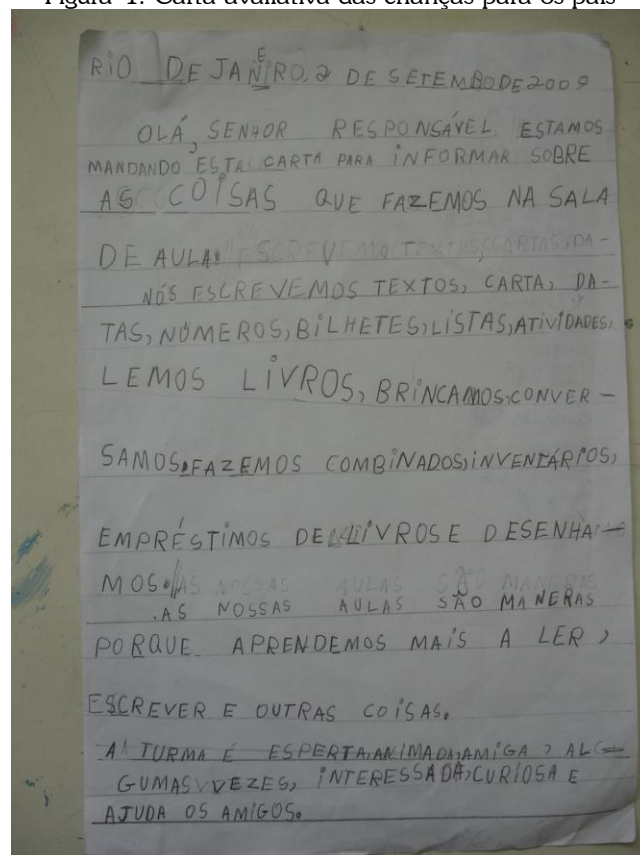 Figura 1: Carta avaliativa das crianças para os pais
RIO DE JANEIRO, 2 DE SETEMBO DE 2009
OLÁ, SENHOR RESPONSÁVEL, ESTAMOS
MANDANDO ESTA CARTA PARA INFORMAR SOBRE
AS COISAS QUE FAZEMOS NA SALA
DE AULA:
NÓS ESCREVEMOS TEXTOS, CARTA, DA-
TAS, NÚMEROS, BILHETES, LISTAS, ATIVIDADES,
LEMOS LIVROS, BRINCAMOS, CONVER-
SAMOS, FAZEMOS COMBINADOS, INVENTÁRIOS,
EMPRÉSTIMOS DE LIVROS E DESENHA-
MOS.
AS NOSSAS AULAS SÃO MANERAS
PORQUE APRENDEMOS MAIS A LER,
ESCREVER E OUTRAS COISAS.
A TURMA É ESPERTA, ANIMADA, AMIGA, ALG-
GUMAS VEZES, INTERESSADA, CURIOSA E
AJUDA OS AMIGOS.